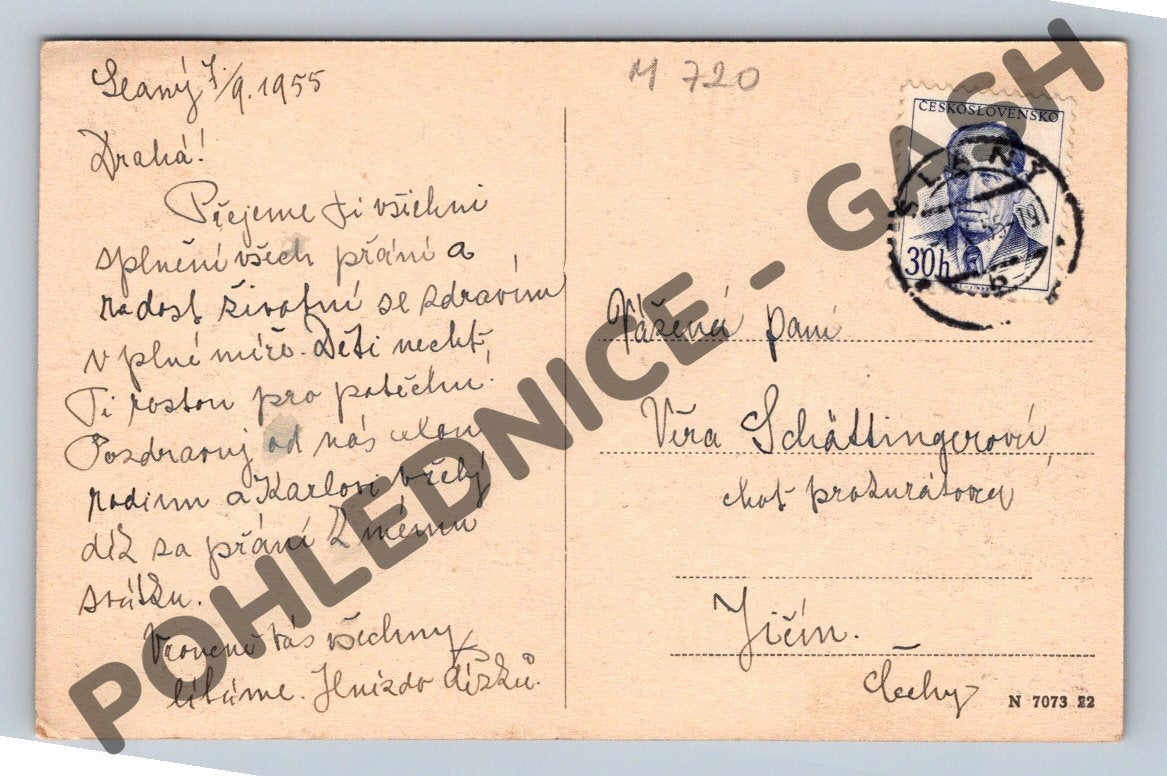 Slaný 7./9. 1955
Drahá!
Přejeme Ti všichni
splnění všech přání a
radost životní se zdravím
v plné míře. Děti nechť
Ti rostou pro potěchu.
Pozdravuj od nás celou
rodinu a Karlovi vřelý
díž za přání k mému
svátku.
Vroucně Vás všechny
líbáme. Hnízdo
M 720
ČESKOSLOVENSKO
30h
SLANÝ
Vážená paní
Věra Schättingerová
choť prokurátora
Jičín.
Čechy
N 7073 22
POHLEDNICE - GASH